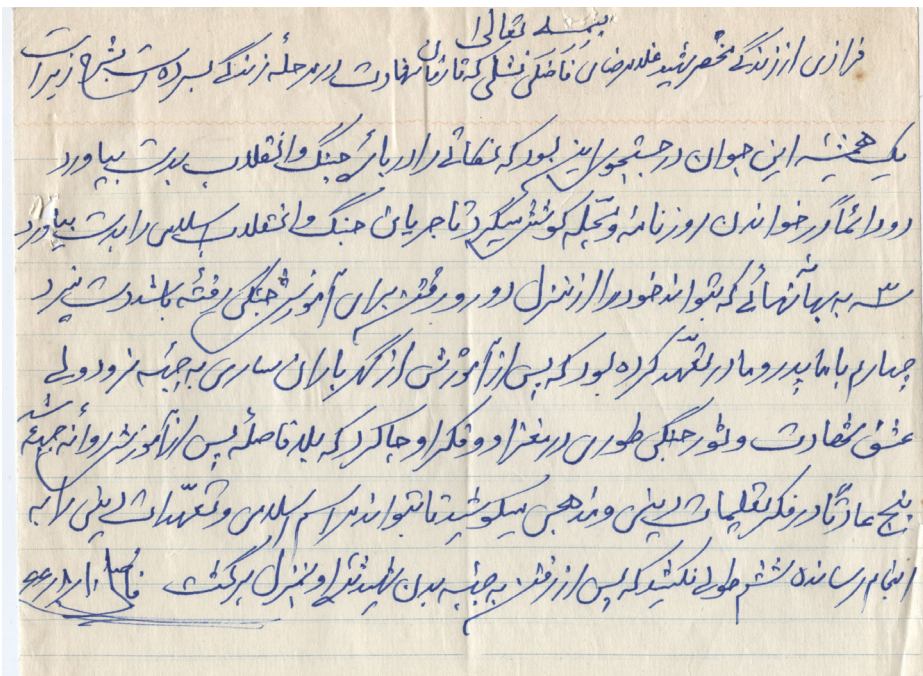 بسمه تعالی
فرازی از زندگی مختصر شهید غلامرضا قاضی که تا زمان شهادت در مرحله زندگی بسر برده است بشرح زیر است
یک همیشه این جوان در جستجوی این بود که نکاتی را درباره جنگ و انقلاب بدست بیاورد
دو دائماً در خواندن روزنامه و مجله کوشش میکرد تا جریان جنگ و انقلاب اسلامی را بدست بیاورد
سه به بهانهائی که بتواند خود را از منزل دور و رفتن برای آموزش جنگی رفته باشد دست نیزد
چهارم با ما پدر و مادر تعهد کرده بود که پس از آموزش از گهرباران ساری به جبهه نرود ولی
عشق شهادت و شور جنگی طوری در مغز او و فکر او جا کرد که بلافاصله پس از آموزش روانه جبهه شد
پنج عادتاً در فکر تعلیمات دینی و مذهبی میکوشید تا بتواند مراسم اسلامی و تعهدات دینی را به
انجام رسانده ششم طولی نکشید که پس از رفتن به جبهه بدن شهید شده او بمنزل برگشت